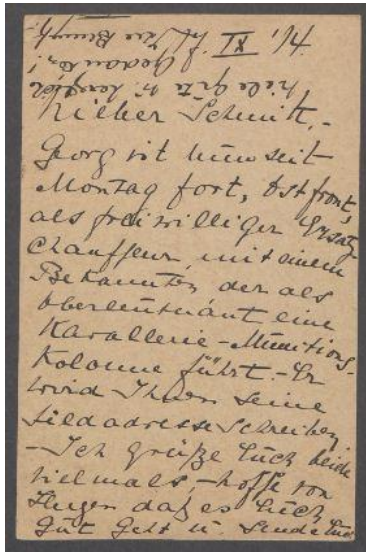 IX. '14.
Lieber Schmitt. -
Georg ist nun seit
Montag fort, Ostfront,
als freiwilliger Ersatz-
Chauffeur, mit einem
Bekannten der als
Oberleutnant eine
Kavallerie-Munitions-
Kolonne führt. - Er
wird Ihnen seine
Feldadresse schreiben
- Ich grüße Euch beide
vielmals, - hoffe von
Herzen daß es Euch
gut geht u. sende Euch
viele Grüße u. herzliche
Gedanken!